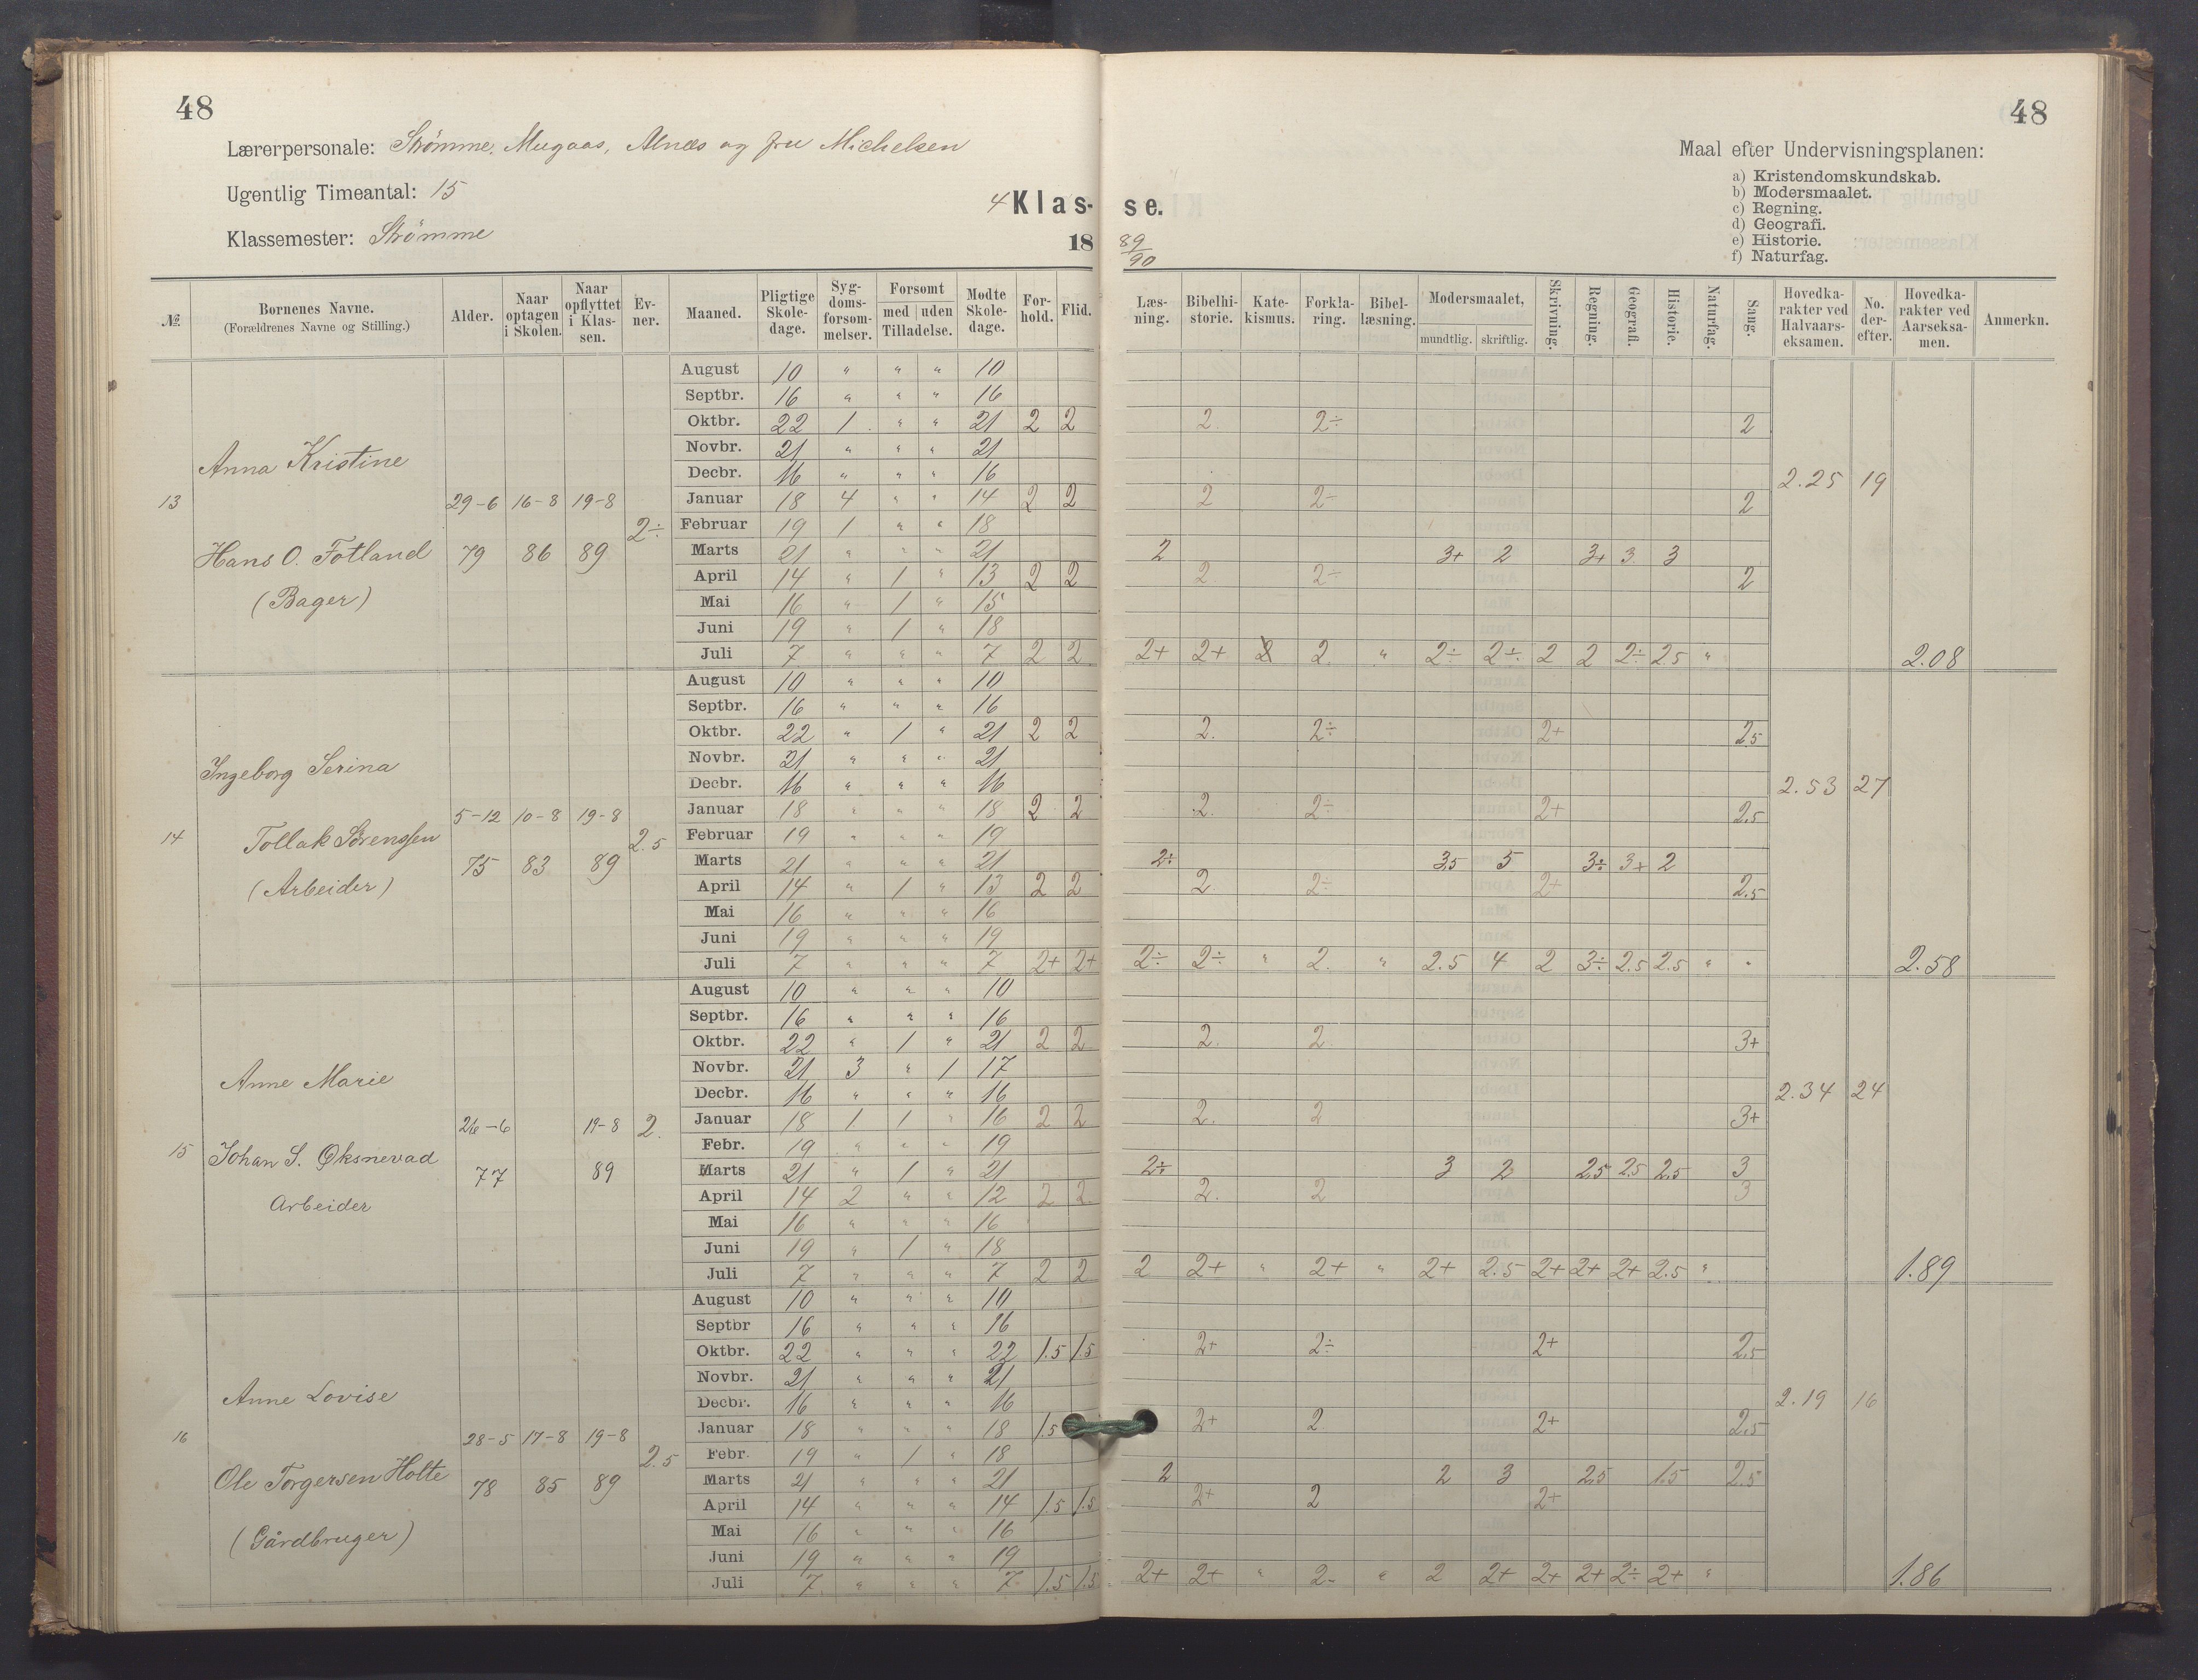 48
48
Lærerpersonale: Strømme, Mugaas, Alnæs og fru Michelsen
Ugentlig Timeantal: 15
Klassemester: Strømme
4 Klas- se.
18 89/90
Maal efter Undervisningsplanen:
a) Kristendomskundskab.
b) Modersmaalet.
c) Regning.
d) Geografi.
e) Historie.
f) Naturfag.
№ | Børnenes Navne. (Forældrenes Navne og Stilling.) | Alder. | Naar optagen i Skolen. | Naar opflyttet i Klassen. | Evner. | Maaned. | Pligtige Skoledage. | Sygdomsforsømmelser. | Forsømt med uden Tilladelse. | Mødte Skoledage. | Forhold. | Flid. | Læsning. | Bibelhistorie. | Katekismus. | Forklaring. | Bibellæsning. | Modersmaalet, mundtlig. skriftlig. | Skrivning. | Regning. | Geografi. | Historie. | Naturfag. | Sang. | Hovedkarakter ved Halvaarseksamen. | No. derefter. | Hovedkarakter ved Aarseksamen. | Anmerkn.
13 Anna Kristine
Hans O. Fotland
(Bager)
29-6 79 | 16-8 86 | 19-8 89 | 2÷
August 10 " " " 10
Septbr. 16 " " " 16
Oktbr. 22 1 " " 21 2 2 | 2. 2÷ 2
Novbr. 21 " " " 21
Decbr. 16 " " " 16
2.25 19
Januar 18 4 " " 14 2 2 | 2 2÷ 2
Februar 19 1 " " 18
Marts 21 " " " 21 | 2 3+ 2 3+ 3 3
April 14 " 1 " 13 2 2 | 2 2÷ 2
Mai 16 " 1 " 15
Juni 19 " 1 " 18
Juli 7 " " " 7 2 2 | 2+ 2+ 2. " 2÷ 2÷ 2 2 2÷ 2.5 " 2.08
14 Ingeborg Serina
Tollak Sørenssen
(Arbeider)
5-12 75 | 10-8 83 | 19-8 89 | 2.5
August 10 " " " 10
Septbr. 16 " " " 16
Oktbr. 22 " 1 " 21 2 2 | 2. 2÷ 2+ 2.5
Novbr. 21 " " " 21
Decbr. 16 " " " 16
2.53 27
Januar 18 " " " 18 2 2 | 2. 2÷ 2+ 2.5
Februar 19 " " " 19
Marts 21 " " " 21 | 2÷ 3.5 5 3÷ 3+ 2
April 14 " 1 " 13 2 2 | 2 2÷ 2+ 2.5
Mai 16 " " " 16
Juni 19 " " " 19
Juli 7 " " " 7 2+ 2+ | 2÷ 2÷ " 2. " 2.5 4 2 3÷ 2.5 2.5 " " 2.58
15 Anne Marie
Johan S. Øksnevad
Arbeider
26-6 77 | 19-8 89 | 2.
August 10 " " " 10
Septbr. 16 " " " 16
Oktbr. 22 " 1 " 21 2 2 | 2. 2 3+
Novbr. 21 3 " 1 17
Decbr. 16 " " " 16
2.34 24
Januar 18 1 1 " 16 2 2 | 2. 2 3+
Febr. 19 " " " 19
Marts 21 " 1 " 21 | 2÷ 3 2 2.5 2.5 2.5 3
April 14 2 " " 12 2 2 | 2. 2 3
Mai 16 " " " 16
Juni 19 " 1 " 18
Juli 7 " " " 7 2 2 | 2 2+ " 2+ " 2+ 2.5 2+ 2+ 2+ 2.5 " 1.89
16 Anne Lovise
Ole Torgersen Holte
(Gårdbruger)
28-5 78 | 17-8 85 | 19-8 89 | 2.5
August 10 " " " 10
Septbr 16 " " " 16
Oktbr. 22 " " " 22 1.5 1.5 | 2+ 2÷ 2+ 2.5
Novbr. 21 " " " 21
Decbr. 16 " " " 16
2.19 16
Januar 18 " " " 18 1.5 | 2+ 2 2+ 2.5
Febr. 19 " 1 " 18
Marts 21 " " " 21 | 2 2 3 2.5 1.5 2.5
April 14 " " " 14 1.5 1.5 | 2+ 2 2+
Mai 16 " " " 16
Juni 19 " " " 19
Juli 7 " " " 7 1.5 1.5 | 2+ 2+ " 2- " 2 2+ 2+ 2+ 2÷ 2+ " 1.86